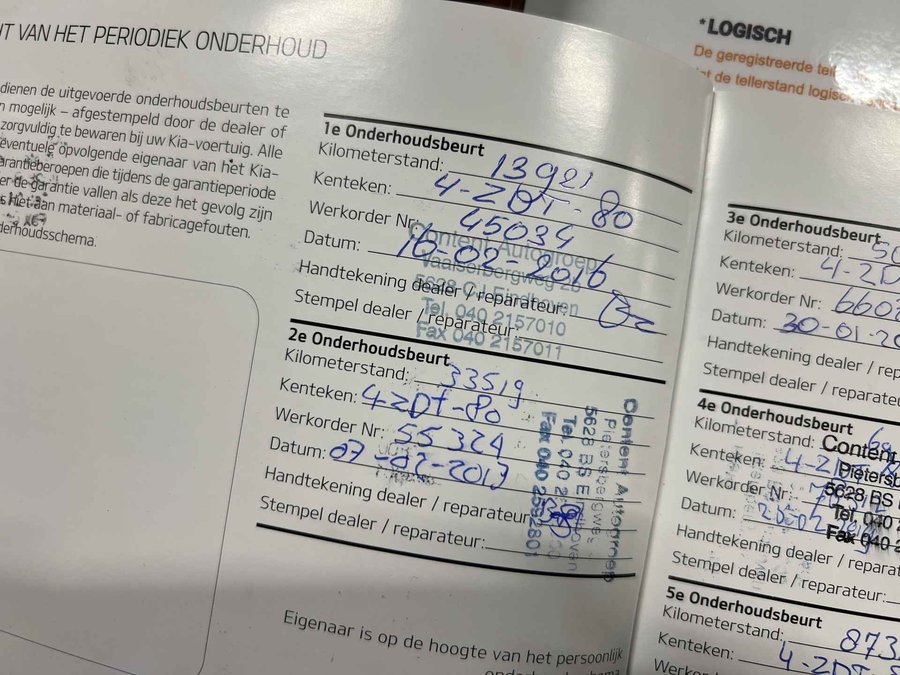 T VAN HET PERIODIEK ONDERHOUD
dienen de uitgevoerde onderhoudsbeurten te
n mogelijk – afgestempeld door de dealer of
zorgvuldig te bewaren bij uw Kia-voertuig. Alle
eventuele opvolgende eigenaar van het Kia-
arantieberoepen die tijdens de garantieperiode
er de garantie vallen als deze het gevolg zijn
s niet aan materiaal- of fabricagefouten.
derhoudsschema.
1e Onderhoudsbeurt
Kilometerstand: 13921
Kenteken: 4-ZDT-80
Werkorder Nr: 45034
Datum: 16-02-2016
Handtekening dealer / reparateur:
Stempel dealer / reparateur:
Content Autogroep
Vaalserbergweg
5628 CJ Eindhoven
Tel. 040 2157010
Fax 040 2157011
2e Onderhoudsbeurt
Kilometerstand: 33519
Kenteken: 4-ZDT-80
Werkorder Nr: 55324
Datum: 07-02-2017
Handtekening dealer / reparateur:
Stempel dealer / reparateur:
Content Autogroep
Pietersbergweg
5628 BS E
Tel. 040 2
Fax 040 2592801
Eigenaar is op de hoogte van het persoonlijk
onderhoudsschema
*LOGISCH
De geregistreerde tel
at de tellerstand logisch
3e Onderhoudsbeurt
Kilometerstand: 50
Kenteken: 4-ZD
Werkorder Nr: 6602
Datum: 30-01-20
Handtekening dealer / rep
Stempel dealer / repara
4e Onderhoudsbeurt
Kilometerstand: 69
Kenteken: 4-ZDT-8
Werkorder Nr:
Datum: 20-02-2019
Handtekening dealer / repa
Stempel dealer / reparateur:
Content
Pietersb
5628 BS
Tel. 040
Fax 040 2
5e Onderhoudsbeurt
Kilometerstand: 873
Kenteken: 4-ZDT-8
Werkorder Nr: